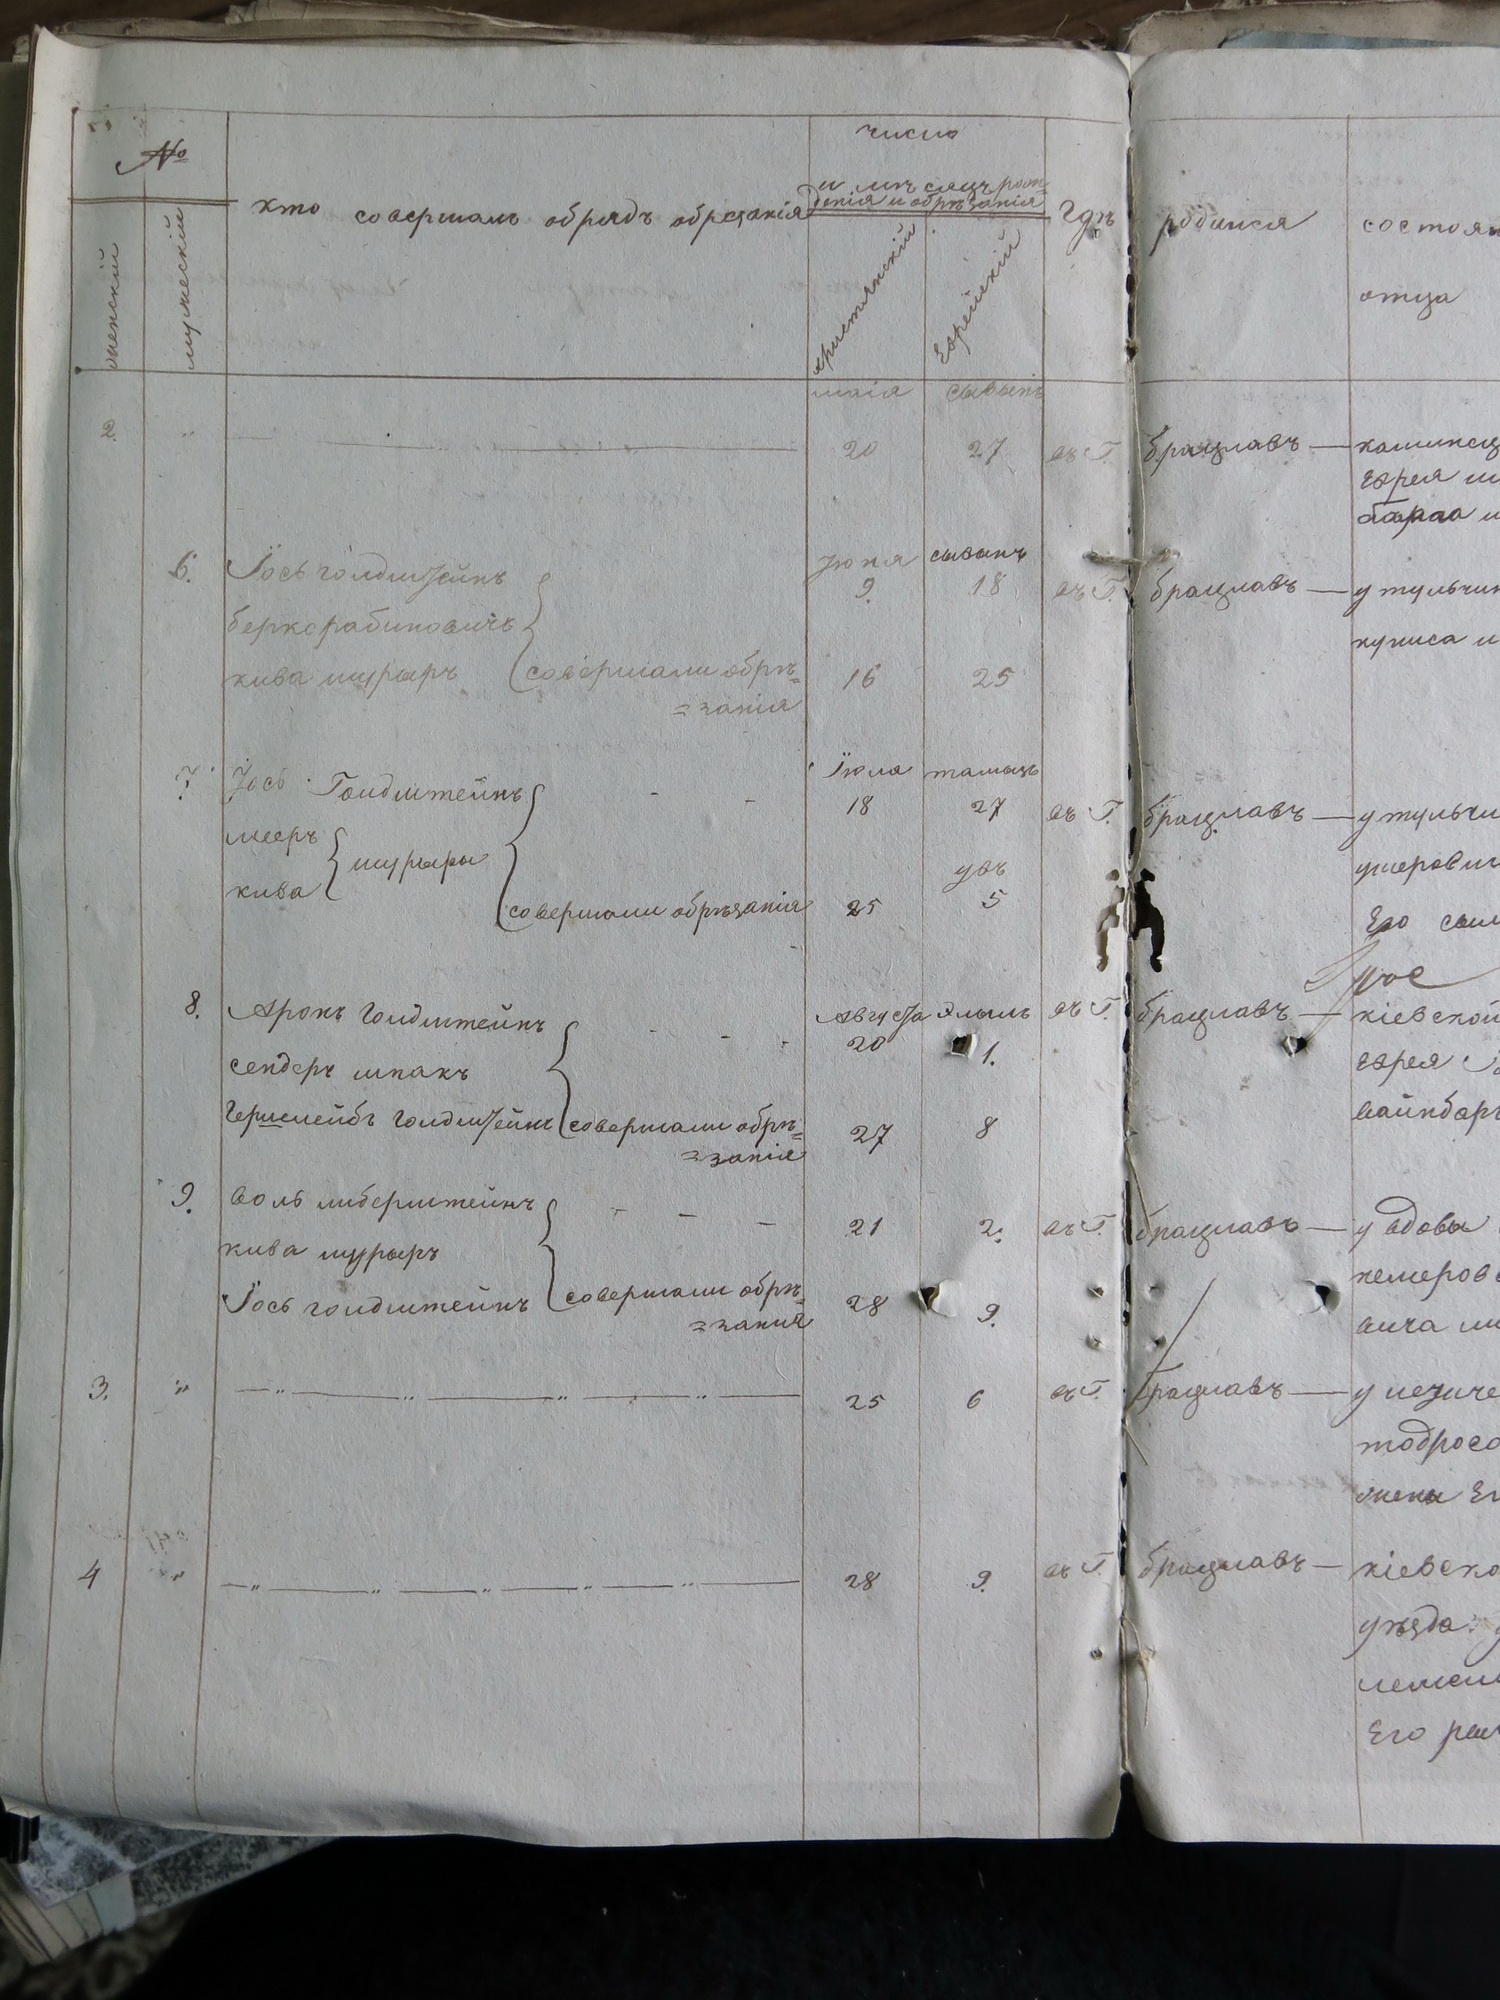 №
женскій
мужескій
кто совершалъ обрядъ обрѣзанія
число
и мѣсяцъ рож-
денія и обрѣзанія
христіянскій
Еврейский
Гдѣ родился
состоян
отца
маія сывынъ
2. " 20 27 въ Г. брацлавъ — каминец
Еврея
6. Іось голдштейнъ
беркорабиновичъ
кива шурыръ совершали обрѣ=
=занія
Іюня сыванъ
9. 18 въ Г. брацлавъ — у тульчин
16 25
7. Іось Голдштейнъ
мееръ
кива шурыры
совершали обрѣзанія
Іюля тамызъ
18 27 въ Г. брацлавъ — у тульчи
увъ
25 5
Его
8. Аронъ голдштейнъ
сендеръ шпакъ
Гершлейбъ голдштейнъ совершали обрѣ=
=занія
Августа Элыль
20 1. въ Г. брацлавъ — кіевской
27 8
Еврея
вайнбарг
9. воль либерштейнъ
кива шурыръ
Іось голдштейнъ совершали обрѣ=
=зания
21 2. въ Г. брацлавъ — у вдовы
28 9.
немеров
вича
3. " — " — " — " — " — 25 6 въ Г. брацлавъ —
тодросо
жены Ег
4 " — " — " — " — " — " — 28 9. въ Г. брацлавъ — кіевско
уѣзда
Его